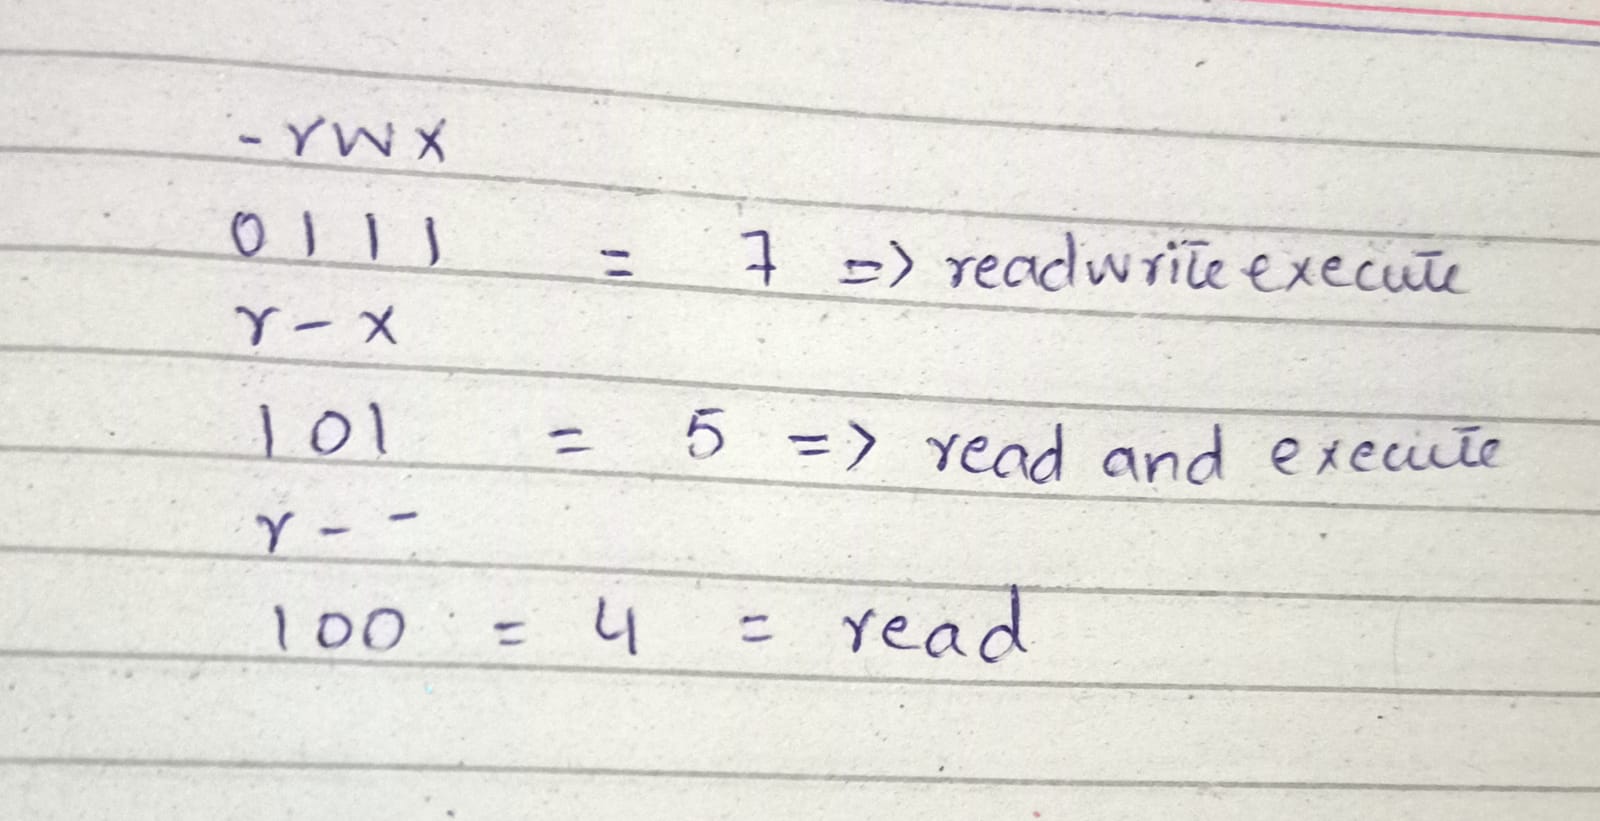 - r w x
0 1 1 1 = 7 => read write execute
r - x
1 0 1 = 5 => read and execute
r - -
1 0 0 = 4 = read